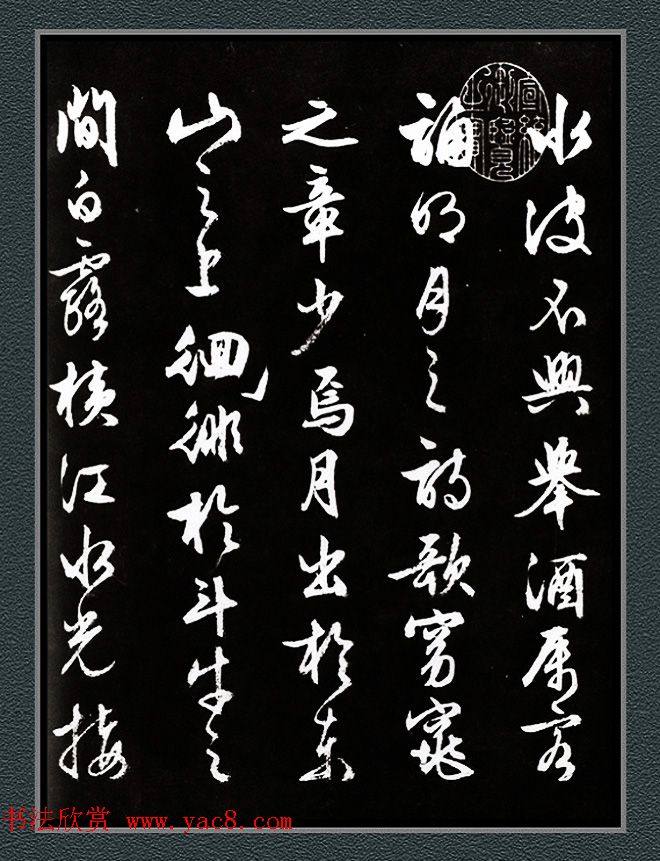 水波不興舉酒属客
誦明月之詩歌窈窕
之章少焉月出於東
山之上徊徘於斗牛之
間白露橫江水光接
书法欣赏 www.yac8.com